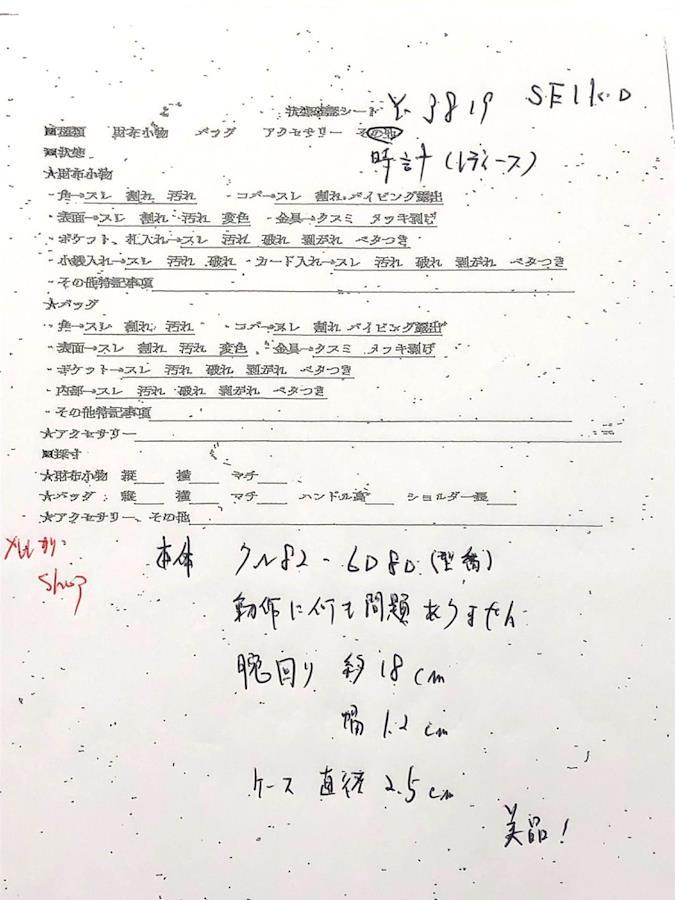 状態確認シート Y- 3819 SEIKO
■種類 財布小物 バッグ アクセサリー その他
■状態 時計(レディース)
★財布小物
・角→スレ 割れ 汚れ ・コバ→スレ 割れ パイピング露出
・表面→スレ 割れ 汚れ 変色 ・金具→クスミ メッキ剥げ
・ポケット、札入れ→スレ 汚れ 破れ 剥がれ ベタつき
・小銭入れ→スレ 汚れ 破れ ・カード入れ→スレ 汚れ 破れ 剥がれ ベタつき
・その他特記事項
★バッグ
・角→スレ 割れ 汚れ ・コバ→スレ 割れ パイピング露出
・表面→スレ 割れ 汚れ 変色 ・金具→クスミ メッキ剥げ
・ポケット→スレ 汚れ 破れ 剥がれ ベタつき
・内部→スレ 汚れ 破れ 剥がれ ベタつき
・その他特記事項
★アクセサリー
■採寸
★財布小物 縦 横 マチ
★バッグ 縦 横 マチ ハンドル高 ショルダー長
★アクセサリー、その他
メルカリ
Shop
本体 82-6D80 (型番)
動作に何も問題ありません
腕回り 約18cm
幅 1.2cm
ケース 直径 2.5cm
美品!